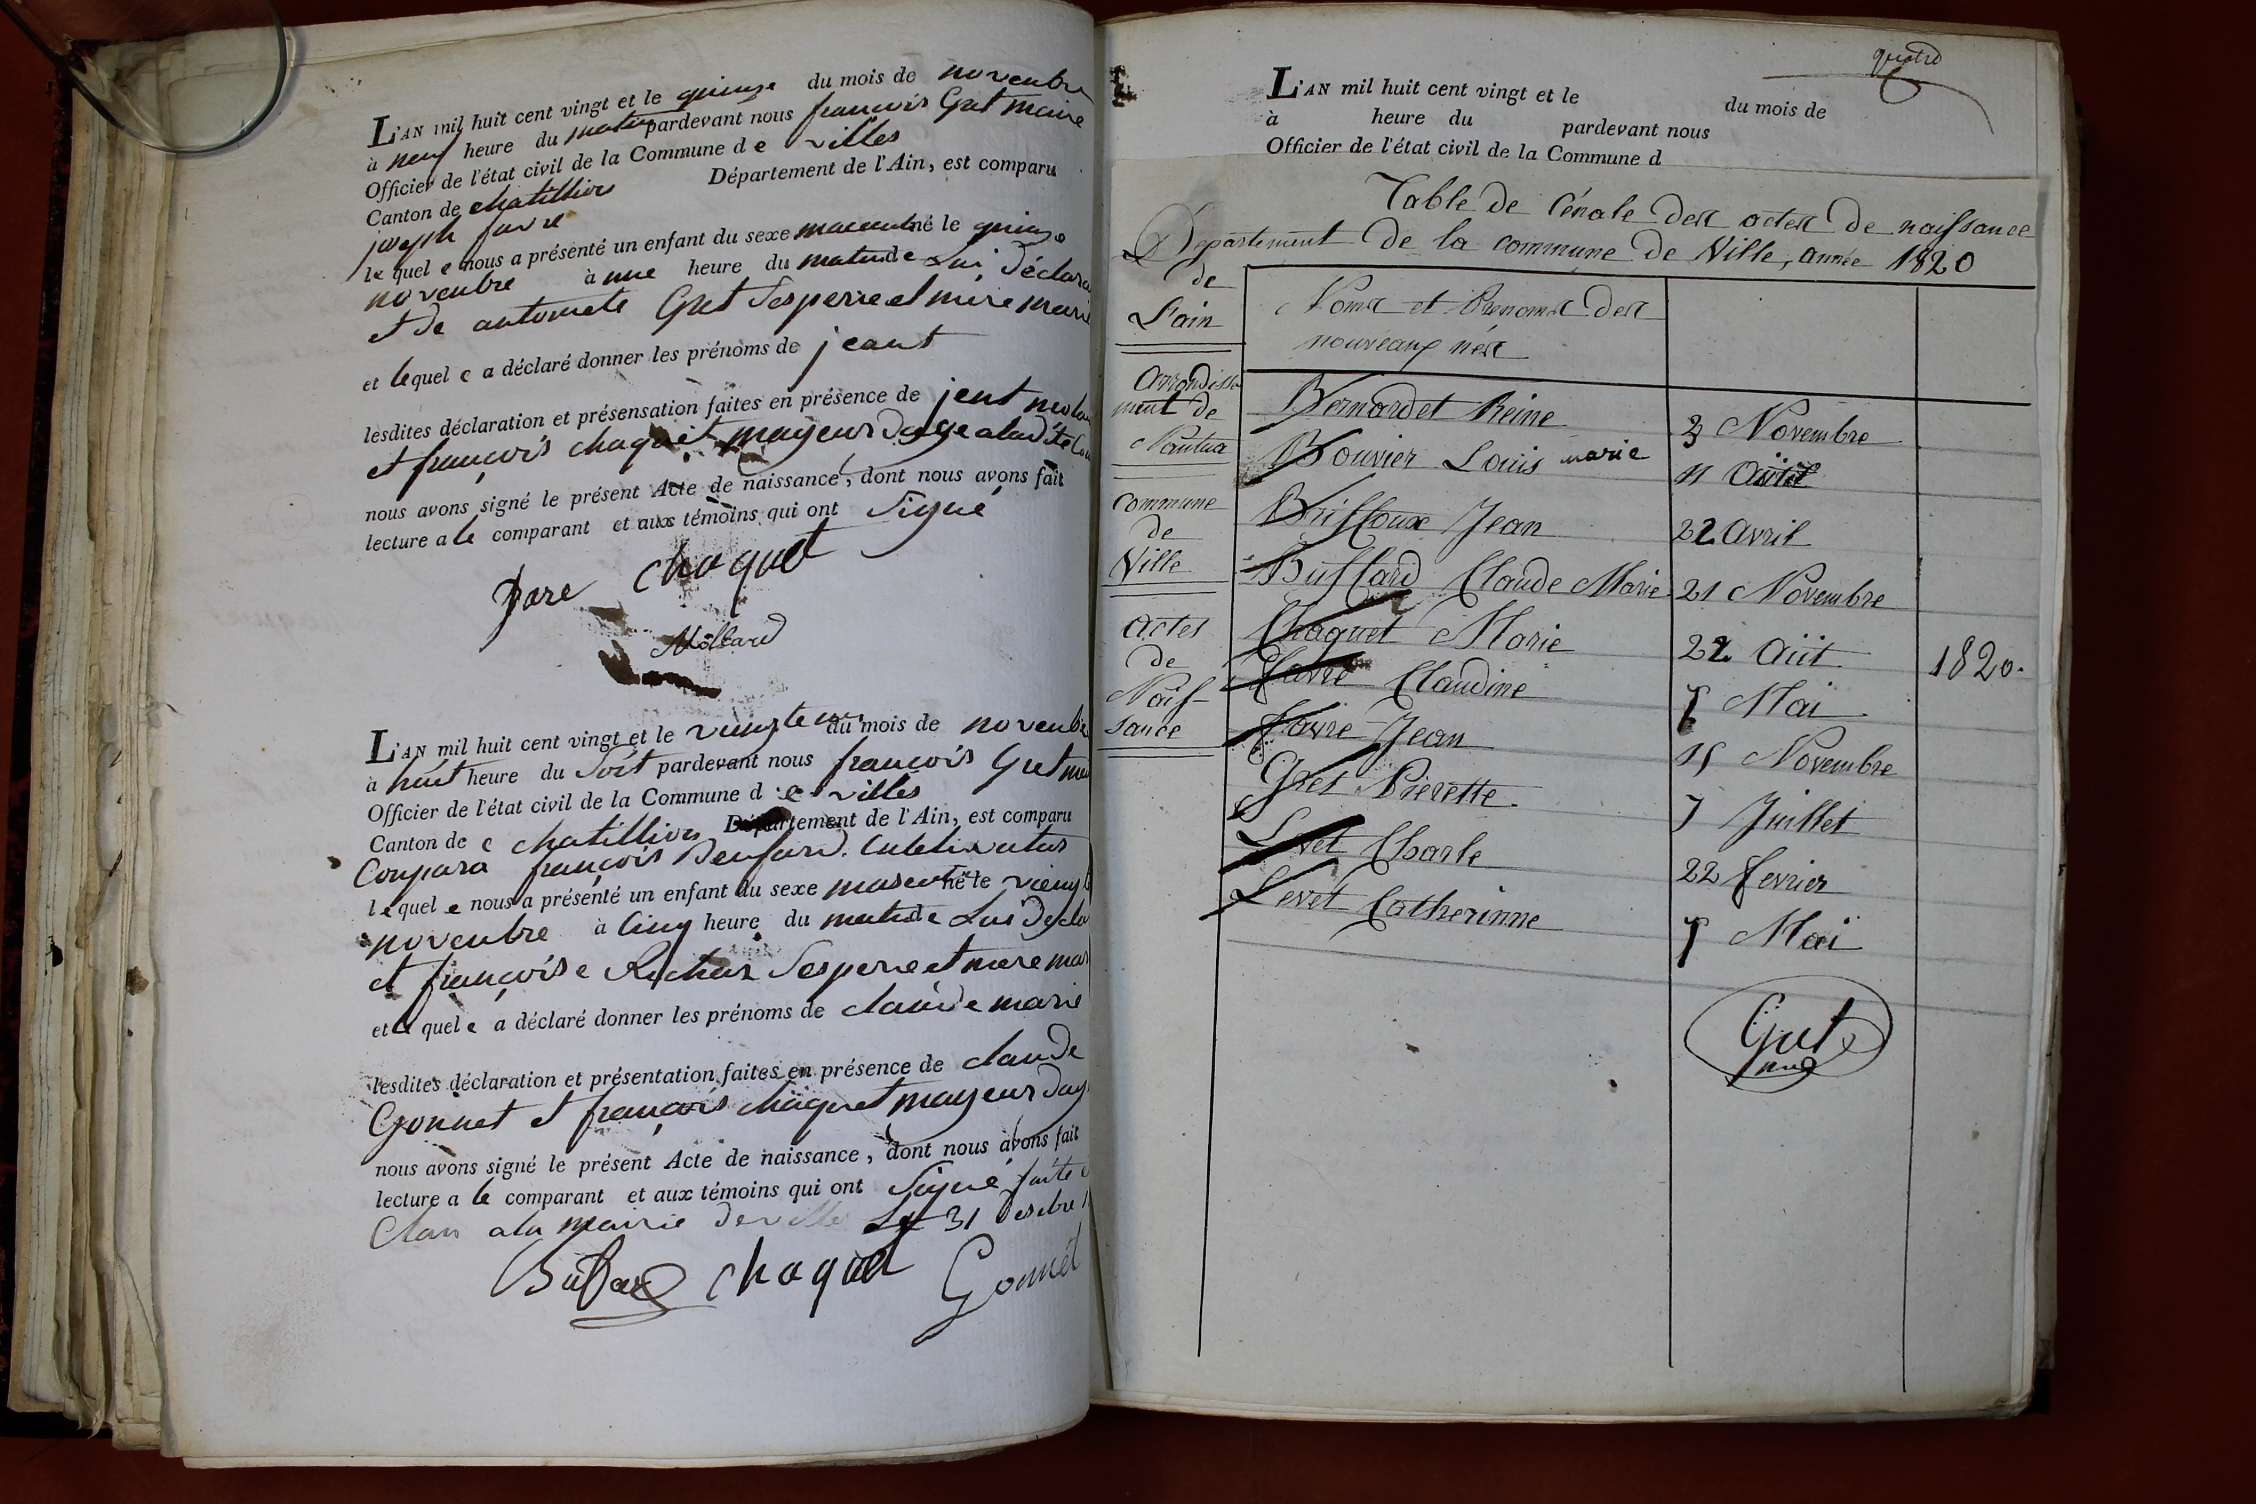 L'AN mil huit cent vingt et le quinze du mois de novenbre
à neuf heure du matin pardevant nous francois Gret maire
Officier de l'état civil de la Commune de villes
Canton de chatillion Département de l'Ain, est comparu
joseph favre
lequel e nous a présenté un enfant du sexe né le quinze
novenbre à une heure du matin de Lui déclara
et de Gret Ses perre et mere
et lequel e a déclaré donner les prénoms de jeant
lesdites déclaration et présensation faites en présence de jent
et françois chaquet mayeur dage a ladite
nous avons signé le présent Acte de naissance, dont nous avons fait
lecture a le comparant et aux témoins qui ont Signé
chaquet
L'AN mil huit cent vingt et le du mois de novenbre
à huit heure du Soit pardevant nous francois Gret
Officier de l'état civil de la Commune de villes
Canton de e chatillion Département de l'Ain, est comparu
Conpara françois
lequel e nous a présenté un enfant du sexe né le
novenbre à Cinq heure du matin de Lui
et françoise Ses perre et mere
et le quel e a déclaré donner les prénoms de claude marie
lesdites déclaration et présentation faites en présence de claude
Gonnet et françois chaquet mayeur
nous avons signé le présent Acte de naissance, dont nous avons fait
lecture a le comparant et aux témoins qui ont Signé faite
Clau a la mairie de ville Le 31
Buffard chaquet Gonnet
quatre
L'AN mil huit cent vingt et le du mois de
à heure du pardevant nous
Officier de l'état civil de la Commune d
Table de des actes de naissance
de la commune de Ville, année 1820
Département
de
L'ain
Arrondisse
ment de
Nantua
Commune
de
Ville
Actes
de
Nais-
sance
Noms et Prenoms des
nouveaux nés
Bernardet Reine 3 Novembre
Bouvier Louis marie 11
Briffoux Jean 22 Avril
Buffard Claude Marie 21 Novembre
Chaquet Marie 22 Aüt 1820.
Favre Claudine Mai
Favre Jean 15 Novembre
Gret Pierette 7 Juillet
Levet Charle 22 fevrier
Levet Catherinne Mai
Gret